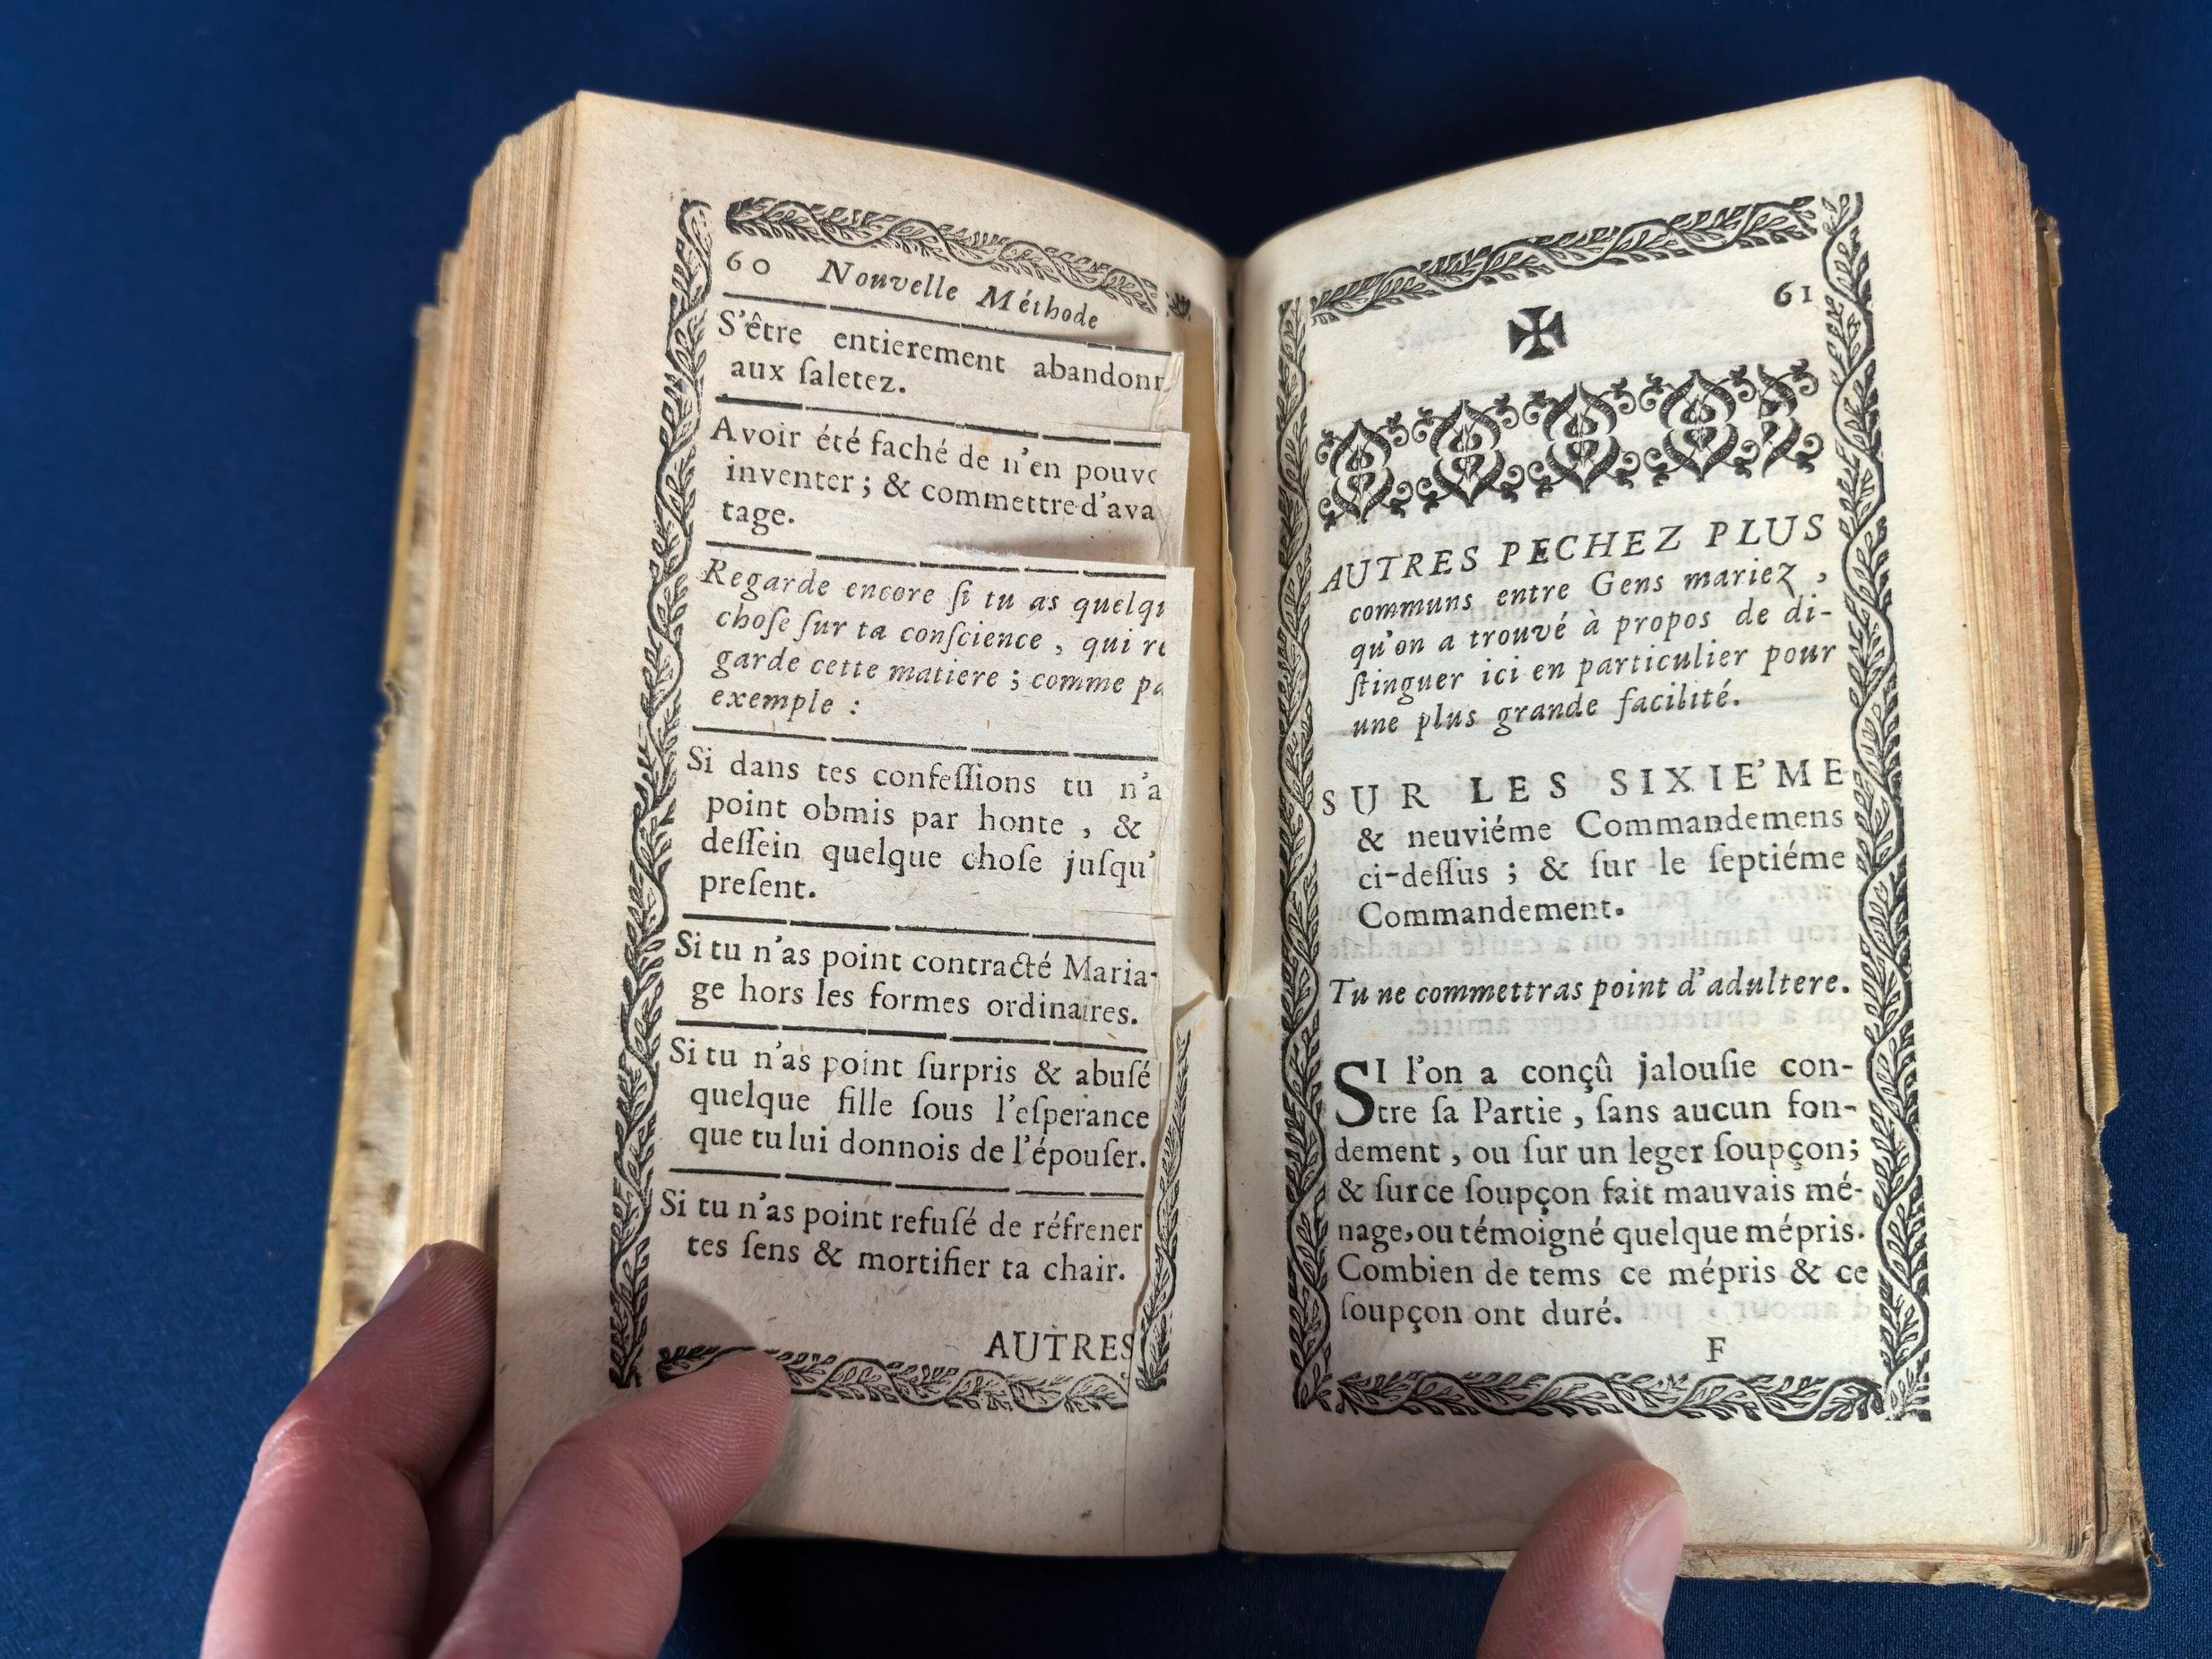 60 Nouvelle Méthode
S'être entierement abandon
aux ſaletez.
Avoir été faché de n'en pouvo
inventer ; & commettre d'ava
tage.
Regarde encore ſi tu as quelqu
choſe ſur ta conſcience , qui re
garde cette matiere ; comme pa
exemple :
Si dans tes confeſſions tu n'a
point obmis par honte , &
deſſein quelque choſe juſqu'
preſent.
Si tu n'as point contracté Maria-
ge hors les formes ordinaires.
Si tu n'as point ſurpris & abuſé
quelque fille ſous l'eſperance
que tu lui donnois de l'épouſer.
Si tu n'as point refuſé de réfrener
tes ſens & mortifier ta chair.
AUTRES
61
AUTRES PECHEZ PLUS
communs entre Gens mariez ,
qu'on a trouvé à propos de di-
ſtinguer ici en particulier pour
une plus grande facilité.
SUR LES SIXIE'ME
& neuviéme Commandemens
ci-deſſus ; & ſur le ſeptiéme
Commandement.
Tu ne commettras point d'adultere.
SI l'on a conçû jalouſie con-
tre ſa Partie , ſans aucun fon-
dement , ou ſur un leger ſoupçon;
& ſur ce ſoupçon fait mauvais mé-
nage, ou témoigné quelque mépris.
Combien de tems ce mépris & ce
ſoupçon ont duré.
F